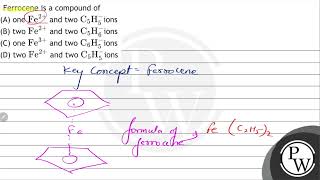 Ferrocene is a compound of
(A) one Fe²⁺ and two C₅H₅⁻ ions
(B) two Fe²⁺ and two C₅H₆⁻ ions
(C) one Fe³⁺ and two C₆H₅⁻ ions
(D) two Fe²⁺ and two C₅H₅⁻ ions
Key Concept = Ferrocene
Fe
formula of ferrocene → Fe (C₅H₅)₂
PW